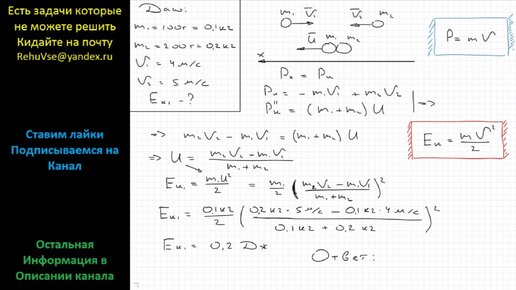 Есть задачи которые
не можете решить
Кидайте на почту
RehuVse@yandex.ru
Ставим лайки
Подписываемся на
Канал
Остальная
Информация в
Описании канала
Дано:
m₁ = 100г = 0,1кг
m₂ = 200г = 0,2кг
V₁ = 4 м/с
V₂ = 5 м/с
Eк₁ - ?
m₁ V̄₁ V̄₂ m₂
Ū m₁ m₂
x
P = mV
Pн = Pк
Pн = - m₁V₁ + m₂V₂
Pк = (m₁ + m₂) U
|⇒
⇒ m₂V₂ - m₁V₁ = (m₁ + m₂) U
Eк = mV²/2
⇒ U = (m₂V₂ - m₁V₁)/(m₁ + m₂)
Eк₁ = m₁U²/2 = m₁/2 ((m₂V₂ - m₁V₁)/(m₁ + m₂))²
Eк₁ = 0,1кг/2 ((0,2кг · 5 м/с - 0,1кг · 4 м/с)/(0,1кг + 0,2кг))²
Eк₁ = 0,2 Дж
Ответ: